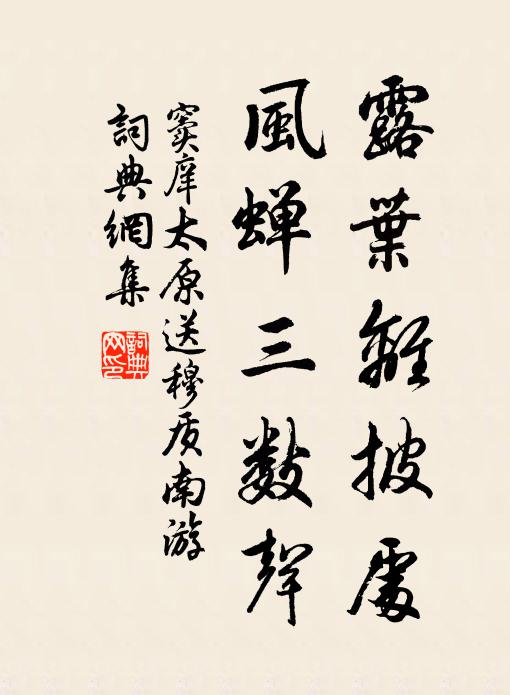 露葉離披處
風蝉三數聲
窦庠太原送穆质南游
詞典網集
詞典网印